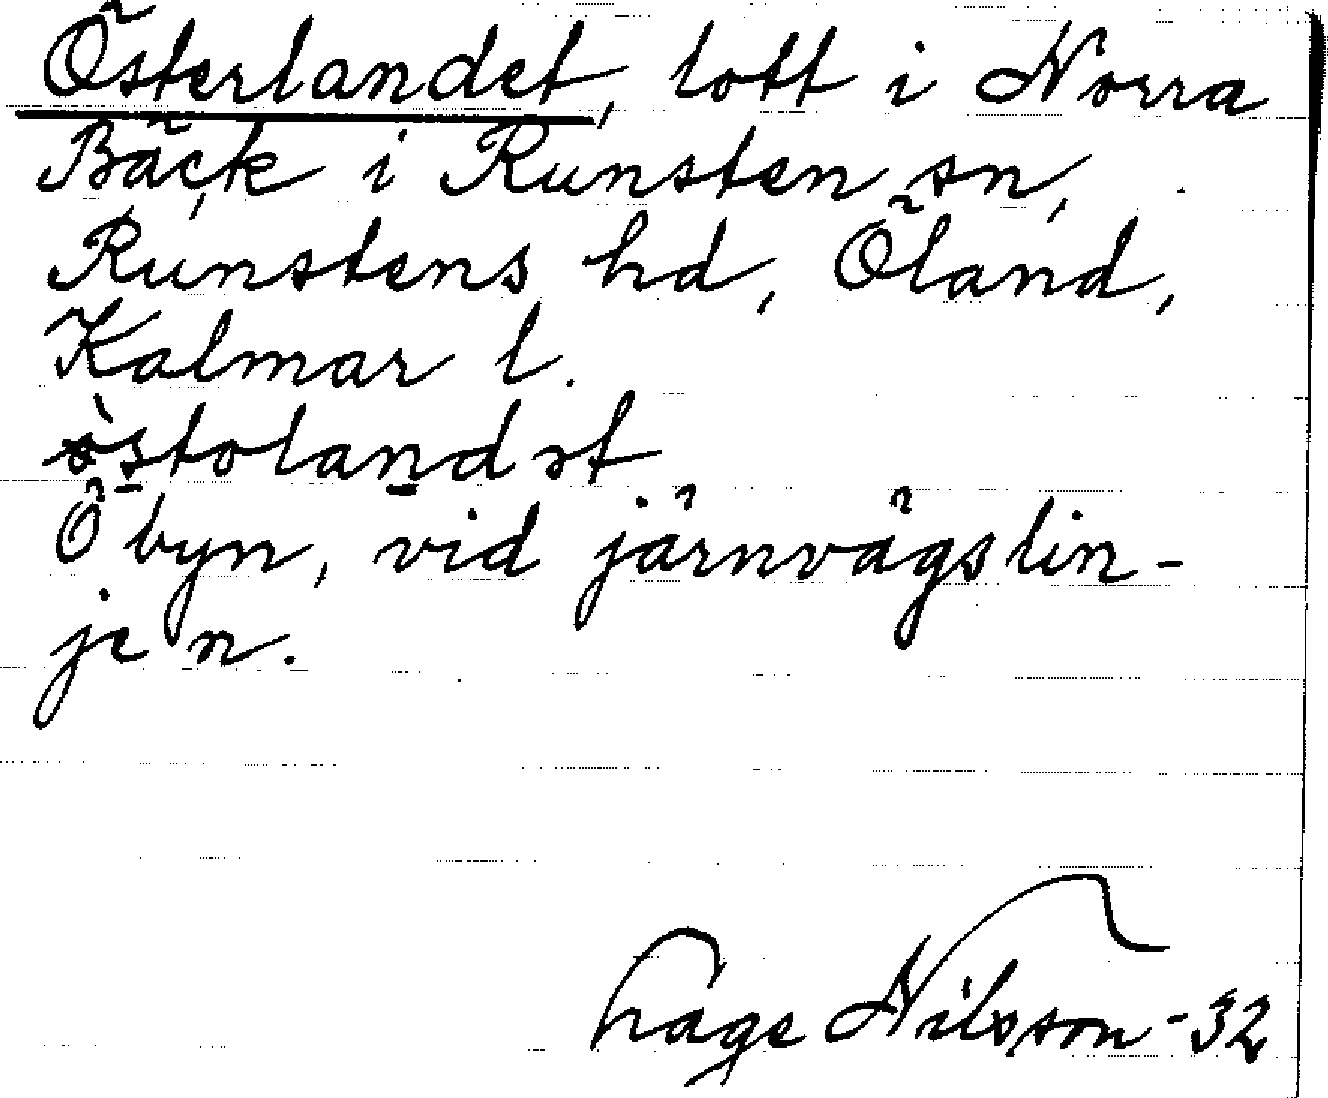 Österlandet, lott i Norra
Bäck i Runsten sn,
Runstens hd, Öland,
Kalmar l.
östolandət
Ö byn, vid järnvägslin-
jen.
Hage Nilsson -32